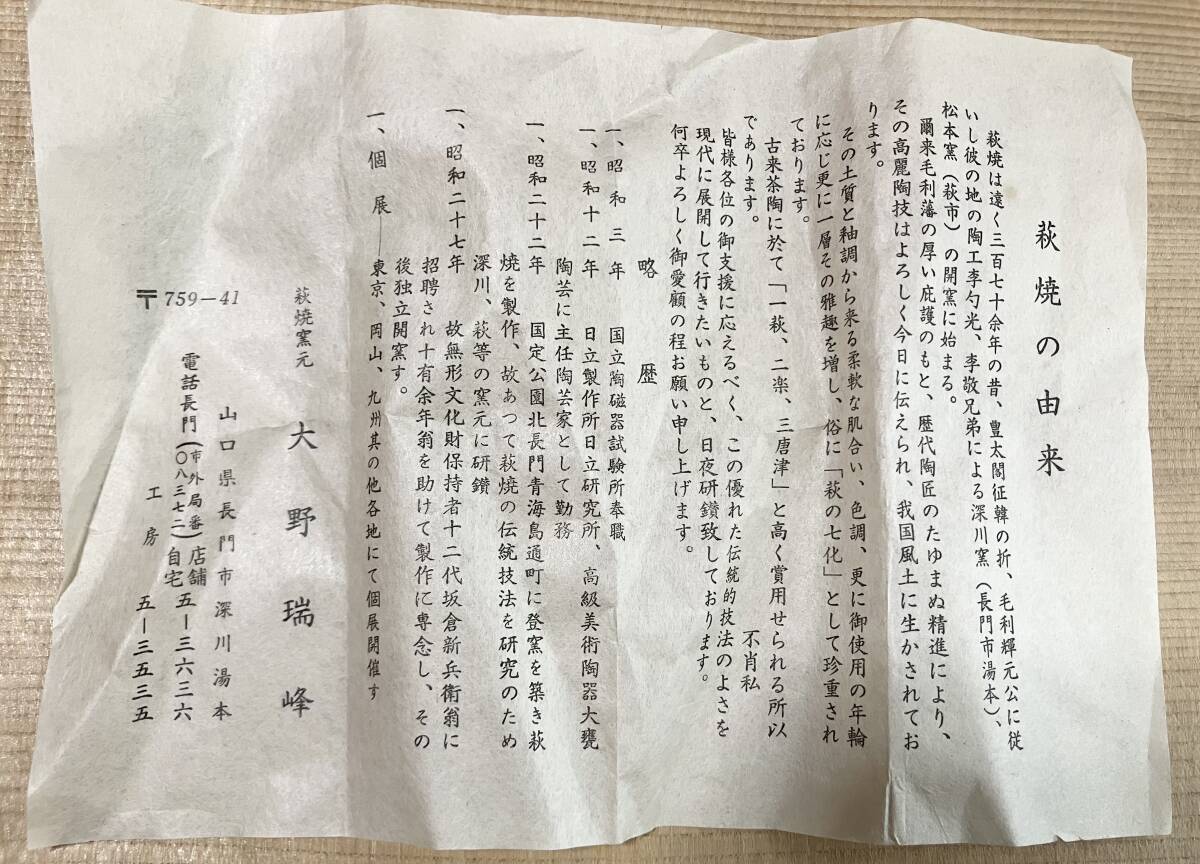 萩焼の由来
萩焼は遠く三百七十余年の昔、豊太閤征韓の折、毛利輝元公に従
いし彼の地の陶工李勺光、李敬兄弟による深川窯（長門市湯本）、
松本窯（萩市）の開窯に始まる。
爾来毛利藩の厚い庇護のもと、歴代陶匠のたゆまぬ精進により、
その高麗陶技はよろしく今日に伝えられ、我国風土に生かされてお
ります。
その土質と釉調から来る柔軟な肌合い、色調、更に御使用の年輪
に応じ更に一層その雅趣を増し、俗に「萩の七化」として珍重され
ております。
古来茶陶に於て「一萩、二楽、三唐津」と高く賞用せられる所以
であります。　不肖私
皆様各位の御支援に応えるべく、この優れた伝統的技法のよさを
現代に展開して行きたいものと、日夜研鑽致しております。
何卒よろしく御愛顧の程お願い申し上げます。
略歴
一、昭和三年　国立陶磁器試験所奉職
一、昭和十二年　日立製作所日立研究所、高級美術陶器大甕
陶芸に主任陶芸家として勤務
一、昭和二十二年　国定公園北長門青海島通町に登窯を築き萩
焼を製作、故あつて萩焼の伝統技法を研究のため
深川、萩等の窯元に研鑽
一、昭和二十七年　故無形文化財保持者十二代坂倉新兵衛翁に
招聘され十有余年翁を助けて製作に専念し、その
後独立開窯す。
一、個展──東京、岡山、九州其の他各地にて個展開催す
萩焼窯元　大野瑞峰
山口県長門市深川湯本
電話長門（市外局番）店舗　五－三六三六
（〇八三七二）自宅
工房　五－三五三五
〒759－41